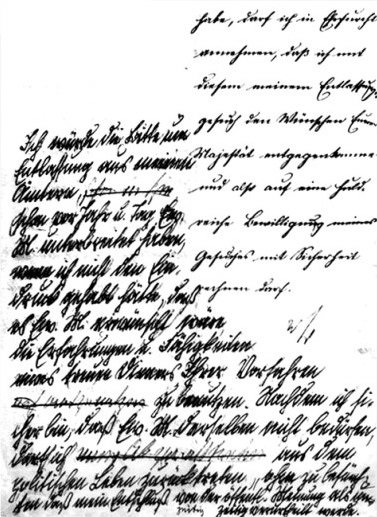 habe, darf ich in Ehrfurcht
annehmen, daß ich mit
diesem meinem Entlassungs-
gesuch den Wünschen Eurer
Majestät entgegenkomme
und also auf eine huld-
reiche Bewilligung meines
Gesuches mit Sicherheit
rechnen darf.
Ich würde die Bitte um
Entlassung aus meinen
Ämtern
schon vor Jahr u. Tag Ew.
M. unterbreitet haben,
wenn ich nicht den Ein-
druck gehabt hätte, daß
es Ew. M. erwünscht wäre
die Erfahrungen u. Fähigkeiten
eines treuen Dieners Ihrer Vorfahren
zu benutzen. Nachdem ich si-
cher bin, daß Ew. M. derselben nicht bedürfen,
darf ich aus dem
politischen Leben zurücktreten, ohne zu befürch-
ten daß mein Entschluß von der öffentl. Meinung als un-
zeitig verurteilt werde.